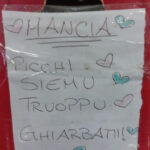 MANCIA
PICCHÌ
SIEMU
TRUOPPU
GHIARBATII!